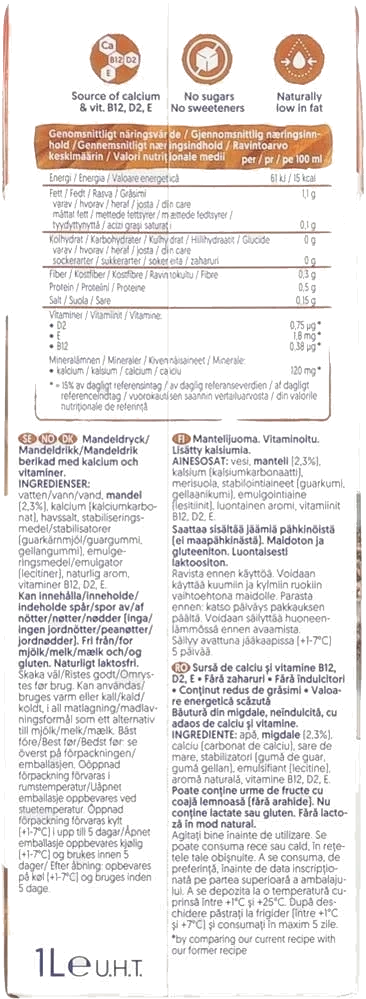 Ca
B12 D2
E
Source of calcium
& vit. B12, D2, E
No sugars
No sweeteners
Naturally
low in fat
Genomsnittligt näringsvärde / Gjennomsnittlig næringsinn-
hold / Gennemsnitligt næringsindhold / Ravintoarvo
keskimäärin / Valori nutriționale medii per / pr / pe 100 ml
Energi / Energia / Valoare energetică 61 kJ / 15 kcal
Fett / Fedt / Rasva / Grăsimi 1,1 g
varav / hvorav / heraf / josta / din care
mättat fett / mettede fettsyrer / mættede fedtsyrer /
tyydyttynyttä / acizi grași saturați 0,1 g
Kolhydrat / Karbohydrater / Kulhydrat / Hiilihydraatit / Glucide 0 g
varav / hvorav / heraf / josta / din care
sockerarter / sukkerarter / sokereita / zaharuri 0 g
Fiber / Kostfiber / Kostfibre / Ravintokuitu / Fibre 0,3 g
Protein / Proteiini / Proteine 0,5 g
Salt / Suola / Sare 0,15 g
Vitaminer / Vitamiinit / Vitamine:
• D2 0,75 µg*
• E 1,8 mg*
• B12 0,38 µg*
Mineralämnen / Mineraler / Kivennäisaineet / Minerale:
• kalcium / kalsium / calcium / calciu 120 mg*
* = 15% av dagligt referensintag / av daglig referanseverdien / af dagligt
referenceindtag / vuorokautisen saannin vertailuarvosta / din valorile
nutriționale de referință
SE NO DK Mandeldryck/
Mandeldrikk/Mandeldrik
berikad med kalcium och
vitaminer.
INGREDIENSER:
vatten/vann/vand, mandel
(2,3%), kalcium (kalciumkarbo-
nat), havssalt, stabiliserings-
medel/stabilisatorer
(guarkärnmjöl/guargummi,
gellangummi), emulge-
ringsmedel/emulgator
(lecitiner), naturlig arom,
vitaminer B12, D2, E.
Kan innehålla/inneholde/
indeholde spår/spor av/af
nötter/nøtter/nødder (inga/
ingen jordnötter/peanøtter/
jordnødder). Fri från/for
mjölk/melk/mælk och/og
gluten. Naturligt laktosfri.
Skaka väl/Ristes godt/Omrys-
tes før brug. Kan användas/
bruges varm eller kall/kald/
koldt, i all matlagning/madlav-
ningsformål som ett alternativ
till mjölk/melk/mælk. Bäst
före/Best før/Bedst før: se
överst på förpackningen/
emballasjen. Oöppnad
förpackning förvaras i
rumstemperatur/Uåpnet
emballasje oppbevares ved
stuetemperatur. Öppnad
förpackning förvaras kylt
(+1-7°C) i upp till 5 dagar/Åpnet
emballasje oppbevares kjølig
(+1-7°C) og brukes innen 5
dager/ Efter åbning: opbevares
på køl (+1-7°C) og bruges inden
5 dage.
FI Mantelijuoma. Vitaminoitu.
Lisätty kalsiumia.
AINESOSAT: vesi, manteli (2,3%),
kalsium (kalsiumkarbonaatti),
merisuola, stabilointiaineet (guarkumi,
gellaanikumi), emulgointiaine
(lesitiinit), luontainen aromi, vitamiinit
B12, D2, E.
Saattaa sisältää jäämiä pähkinöistä
(ei maapähkinästä). Maidoton ja
gluteeniton. Luontaisesti
laktoositon.
Ravista ennen käyttöä. Voidaan
käyttää kuumiin ja kylmiin ruokiin
vaihtoehtona maidolle. Parasta
ennen: katso päiväys pakkauksen
päältä. Voidaan säilyttää huoneen-
lämmössä ennen avaamista.
Säilyy avattuna jääkaapissa (+1-7°C)
5 päivää.
RO Sursă de calciu și vitamine B12,
D2, E • Fără zaharuri • Fără îndulcitori
• Conținut redus de grăsimi • Valoa-
re energetică scăzută
Băutură din migdale, neîndulcită, cu
adaos de calciu și vitamine.
INGREDIENTE: apă, migdale (2,3%),
calciu (carbonat de calciu), sare de
mare, stabilizatori (gumă de guar,
gumă gellan), emulsifiant (lecitine),
aromă naturală, vitamine B12, D2, E.
Poate conține urme de fructe cu
coajă lemnoasă (fără arahide). Nu
conține lactate sau gluten. Fără lacto-
ză în mod natural.
Agitați bine înainte de utilizare. Se
poate consuma rece sau cald, în rețe-
tele tale obișnuite. A se consuma, de
preferință, înainte de data inscripțio-
nată pe partea superioară a ambalaju-
lui. A se depozita la o temperatură cu-
prinsă între +1°C și +25°C. După des-
chidere păstrați la frigider (între +1°C
și +7°C) și consumați în maxim 5 zile.
*by comparing our current recipe with
our former recipe
1L e U.H.T.